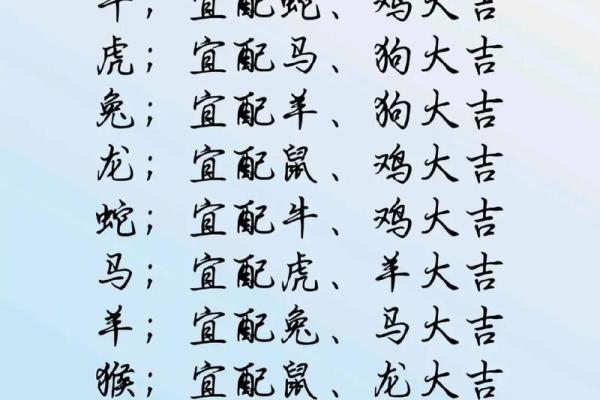 牛；宜配蛇、鸡大吉
虎；宜配马、狗大吉
兔；宜配羊、狗大吉
龙；宜配鼠、鸡大吉
蛇；宜配牛、鸡大吉
马；宜配虎、羊大吉
羊；宜配兔、马大吉
猴；宜配鼠、龙大吉